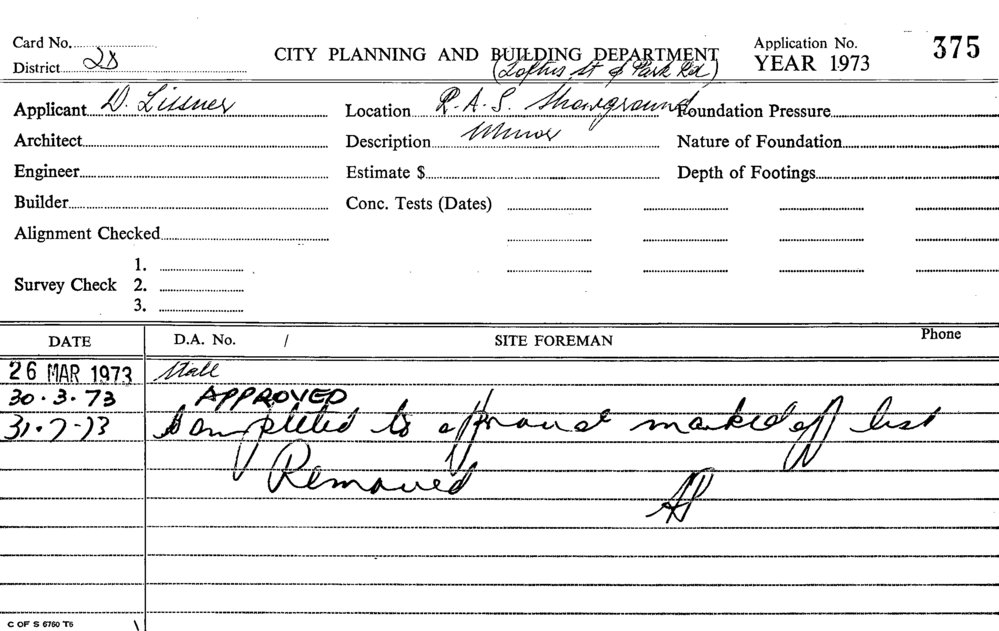 Card No.
CITY PLANNING AND BUILDING DEPARTMENT
Application No. 375
District 2D
(Loftus St & Park Rd)
YEAR 1973
Applicant D. Lissner
Location R.A.S. Showground
Foundation Pressure
Architect
Description Minor
Nature of Foundation
Engineer
Estimate $
Depth of Footings
Builder
Conc. Tests (Dates)
Alignment Checked
1.
Survey Check 2.
3.
DATE D.A. No. / SITE FOREMAN Phone
26 MAR 1973 Stall
30.3.73 APPROVED
31.7.73 Completed to approval marked off list
Removed
C OF S 6760 T6